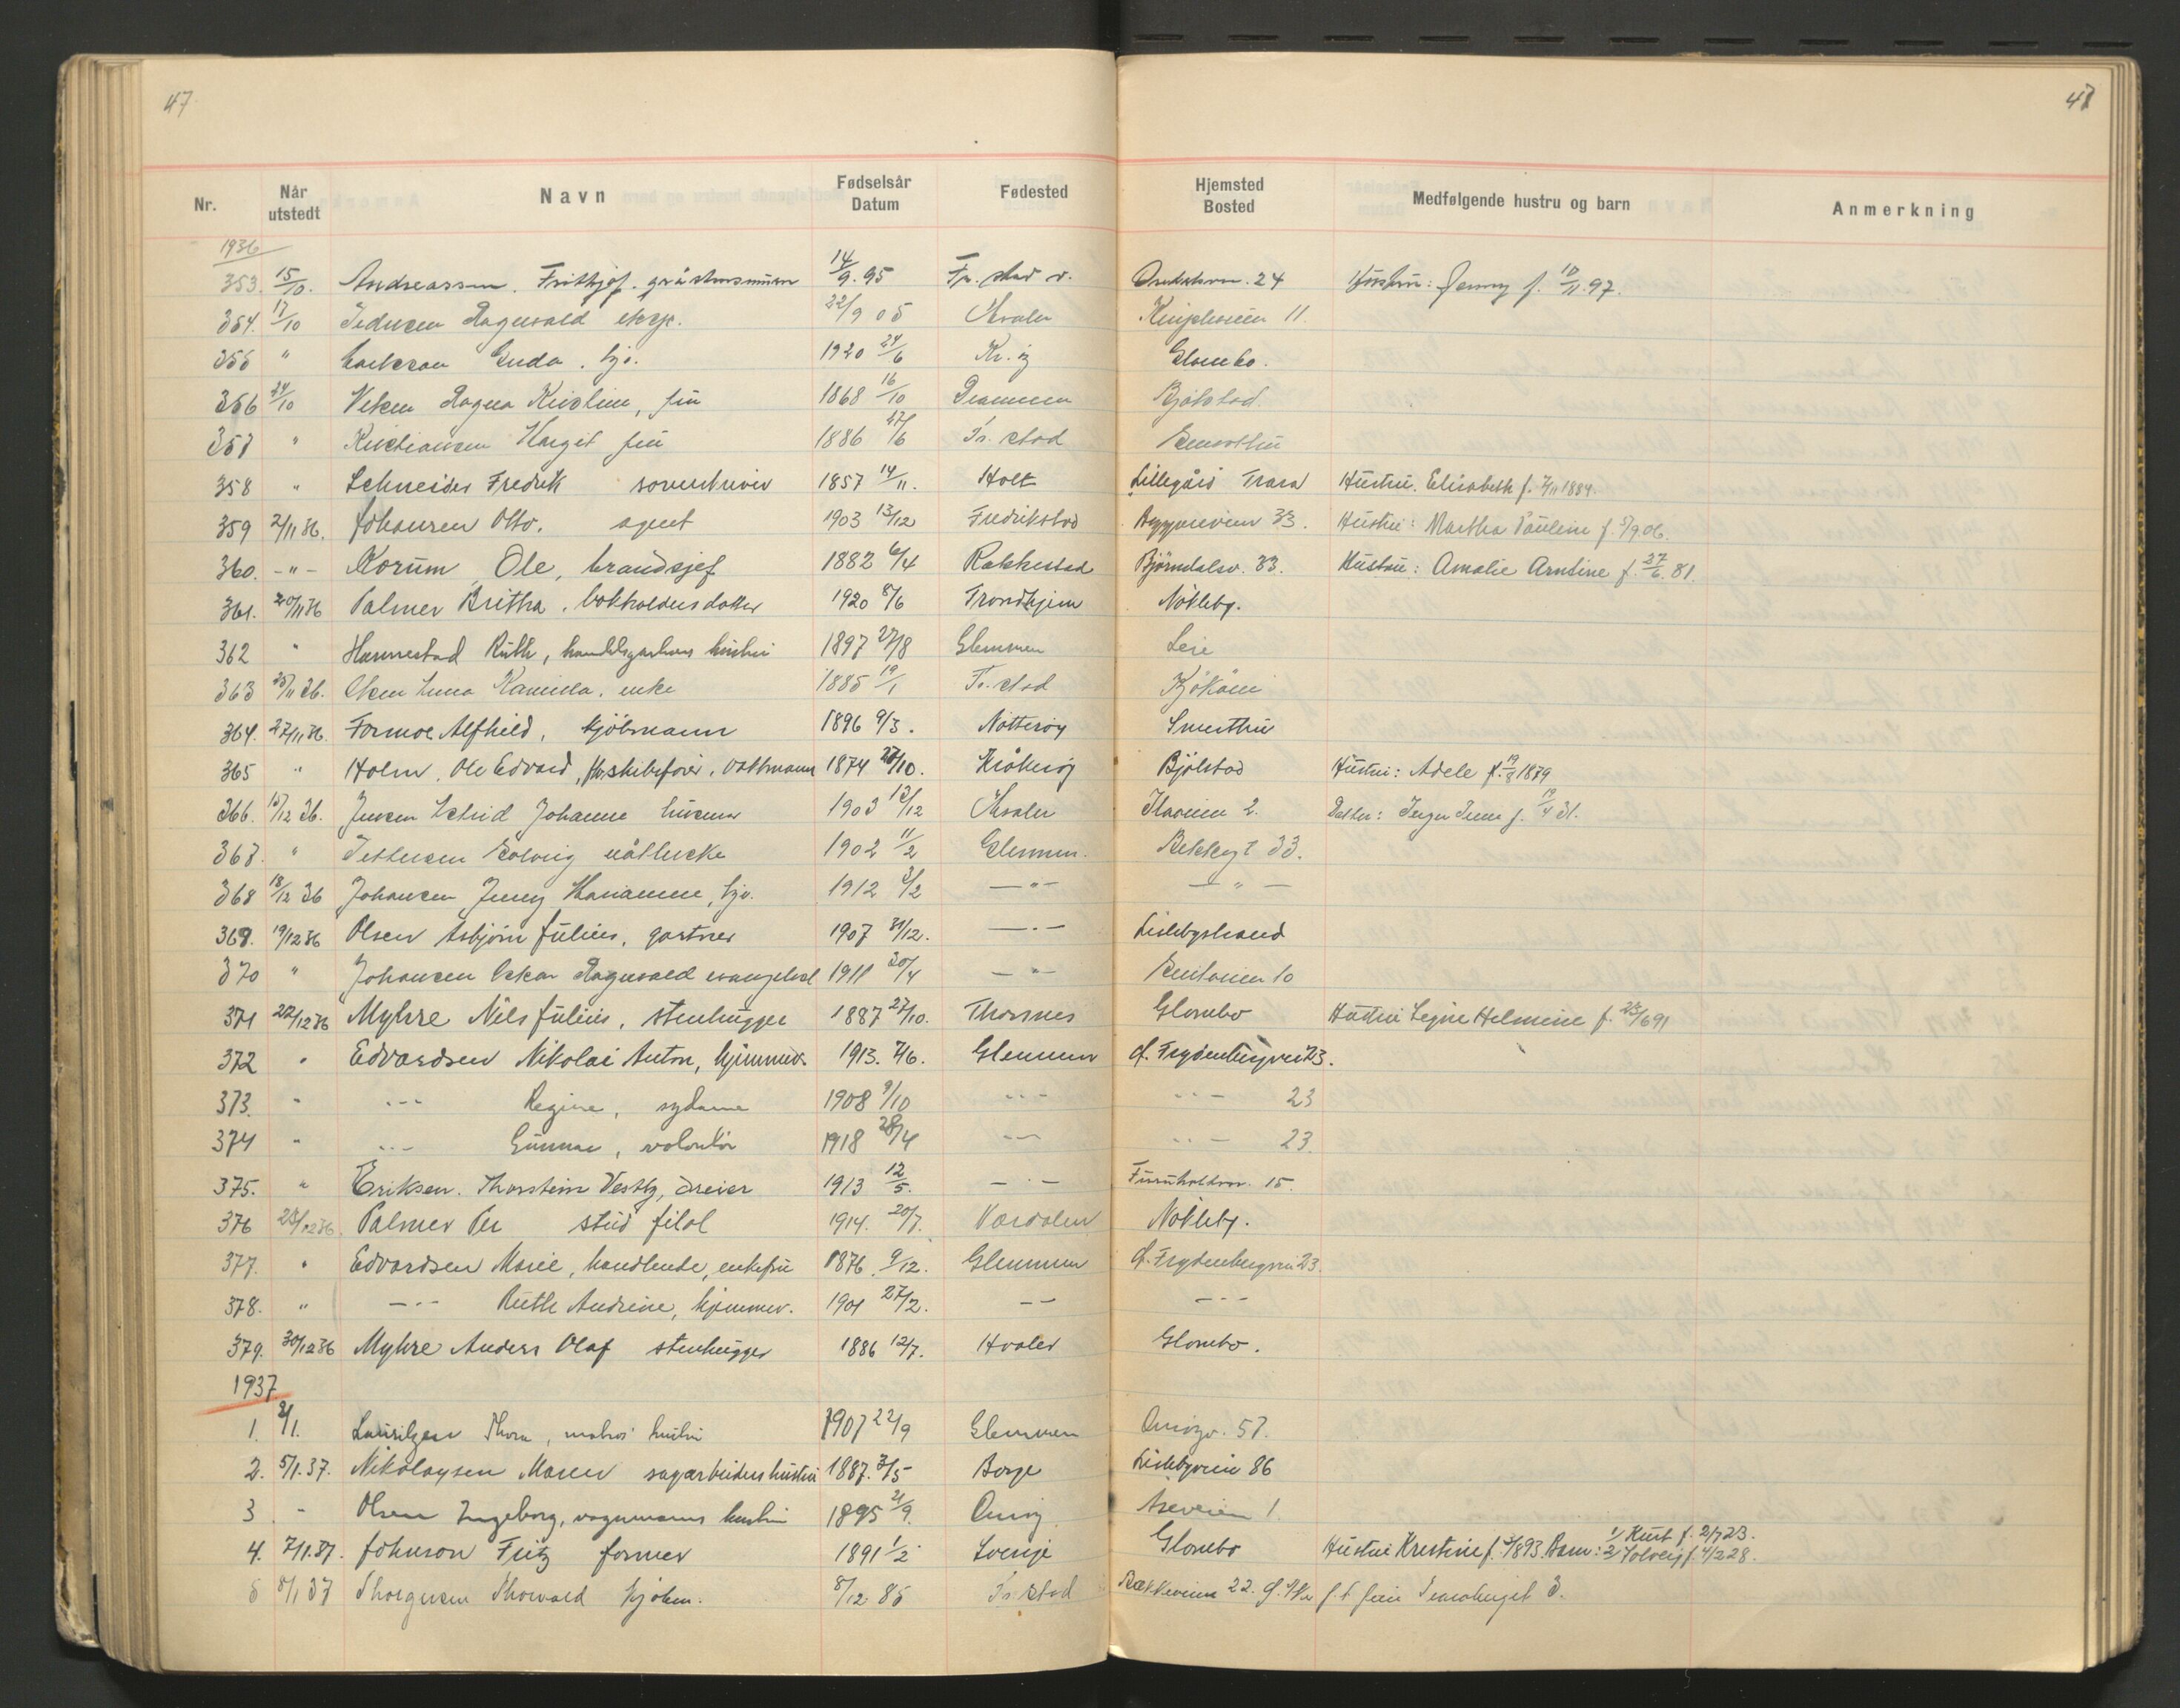 47
47
Nr. Når utstedt Navn Fødselsår Datum Fødested Hjemsted Bosted Medfølgende hustru og barn Anmerkning
1936
353. 15/10. Andreassen. Frithjof. gråstensmurer 14/9. 95 Fr.stad v. 24 Hustru: Jenny f. 10/11 97.
354. 17/10 Ragnvald eksp. 22/9 05 Hvaler 11
355 " Gerda. hjv. 1920 24/6 Kr. Glombo.
356 24/10 Ragna Kristine, fru 1868 16/10 Drammen Bjølstad
357 " Kristiansen Margit fru 1886 27/6 Fr.stad
358 " Schneider Fredrik sorenskriver 1857 14/11. Holt Lillegård Trara Hustru. Elisabeth f. 1884.
359 2/11 36. Johansen Otto. agent 1903 13/12 Fredrikstad 33. Hustru: Martha Pauline f. 5/9 06.
360. -"- Korum, Ole, brandsjef 1882 6/4 Rakkestad Bjørndalsv. 33. Hustru: Amalie Arntine f. 27/6. 81.
361. 20/11 36 Palmer Britha, bokholders datter 1920 8/6 Trondhjem Nøkleby.
362 " Hannestad Ruth, hustru 1897 27/8 Glemmen Leie
363 25/11 36. Olsen Anna Kamilla, enke 1885 19/1 Fr.stad
364. 27/11 36. Formoe Alfhild, kjøbmann 1896 9/3. Nøtterøy
365 " Holm. Ole Edvard, fhv. skibsfører, vaktmann 1874 28/10. Kråkerøy Bjølstad Hustru: Adele f. 19/8 1879
366. 15/12 36. Jensen Astrid Johanne husmor 1903 13/12 Hvaler 2. Datter: Inger f. 19/4 31.
367. " Solveig 1902 11/2 Glemmen. 33.
368 18/12 36 Johansen Jenny Marianne, hjv. 1912 3/2 -"- -"-
369. 19/12 36 Olsen Asbjørn Julius, gartner 1907 31/12. -"- Lislebystrand
370 " Johansen Oskar Ragnvald evangelist 1911 20/4 -"- 10
371 22/12 36 Myhre Nils Julius, stenhugger 1887 27/10. Thorsnes Glombo Hustru Signe Helmine f. 25/6 91
372 " Edvardsen Nikolai Anton, hjemmev. 1913. 7/6. Glemmen G. Frydenbergvei 23.
373. " -"- Regine, sydame 1908 9/10 -"- -"- 23
374 " -"- Gunnar, volontør 1918 28/4 -"- -"- 23.
375. " Eriksen. Thorstein Vestby, dreier 1913 12/5. -"- Furuholtvn. 15.
376 28/12 36. Palmer Per stud filol 1914. 20/7. Værdalen Nøkleby.
377. " Edvardsen Marie, handlende, enkefru 1876. 9/12. Glemmen G. Frydenbergvei 23.
378. " -"- Ruth Andrine, hjemmev. 1901 27/2. -"- -"-
379. 30/12 36 Myhre Anders Olaf stenhugger 1886 12/7. Hvaler Glombo.
1937
1. 2/1. Lauritzen Thora, matros hustru 1907 22/9 Glemmen Onsøyv. 57.
2. 5/1. 37. Nikolaysen Maren sagarbeiders hustru 1887. 3/5 Borge Lislebyveien 86
3. - Olsen Ingeborg, vognmanns hustru 1895 21/9. Onsøy 1.
4. 7/1. 37. Johnson Fritz former 1891 1/2 Sverige Glombo Hustru Kristine f. 3/8 93. Barn: 1/ Kurt f. 2/7 23.
2/ Solveig f. 4/2 28.
5 8/1 37 Thorgersen Thorvald kjøbm. 8/12. 85 Fr.stad 22. 3.